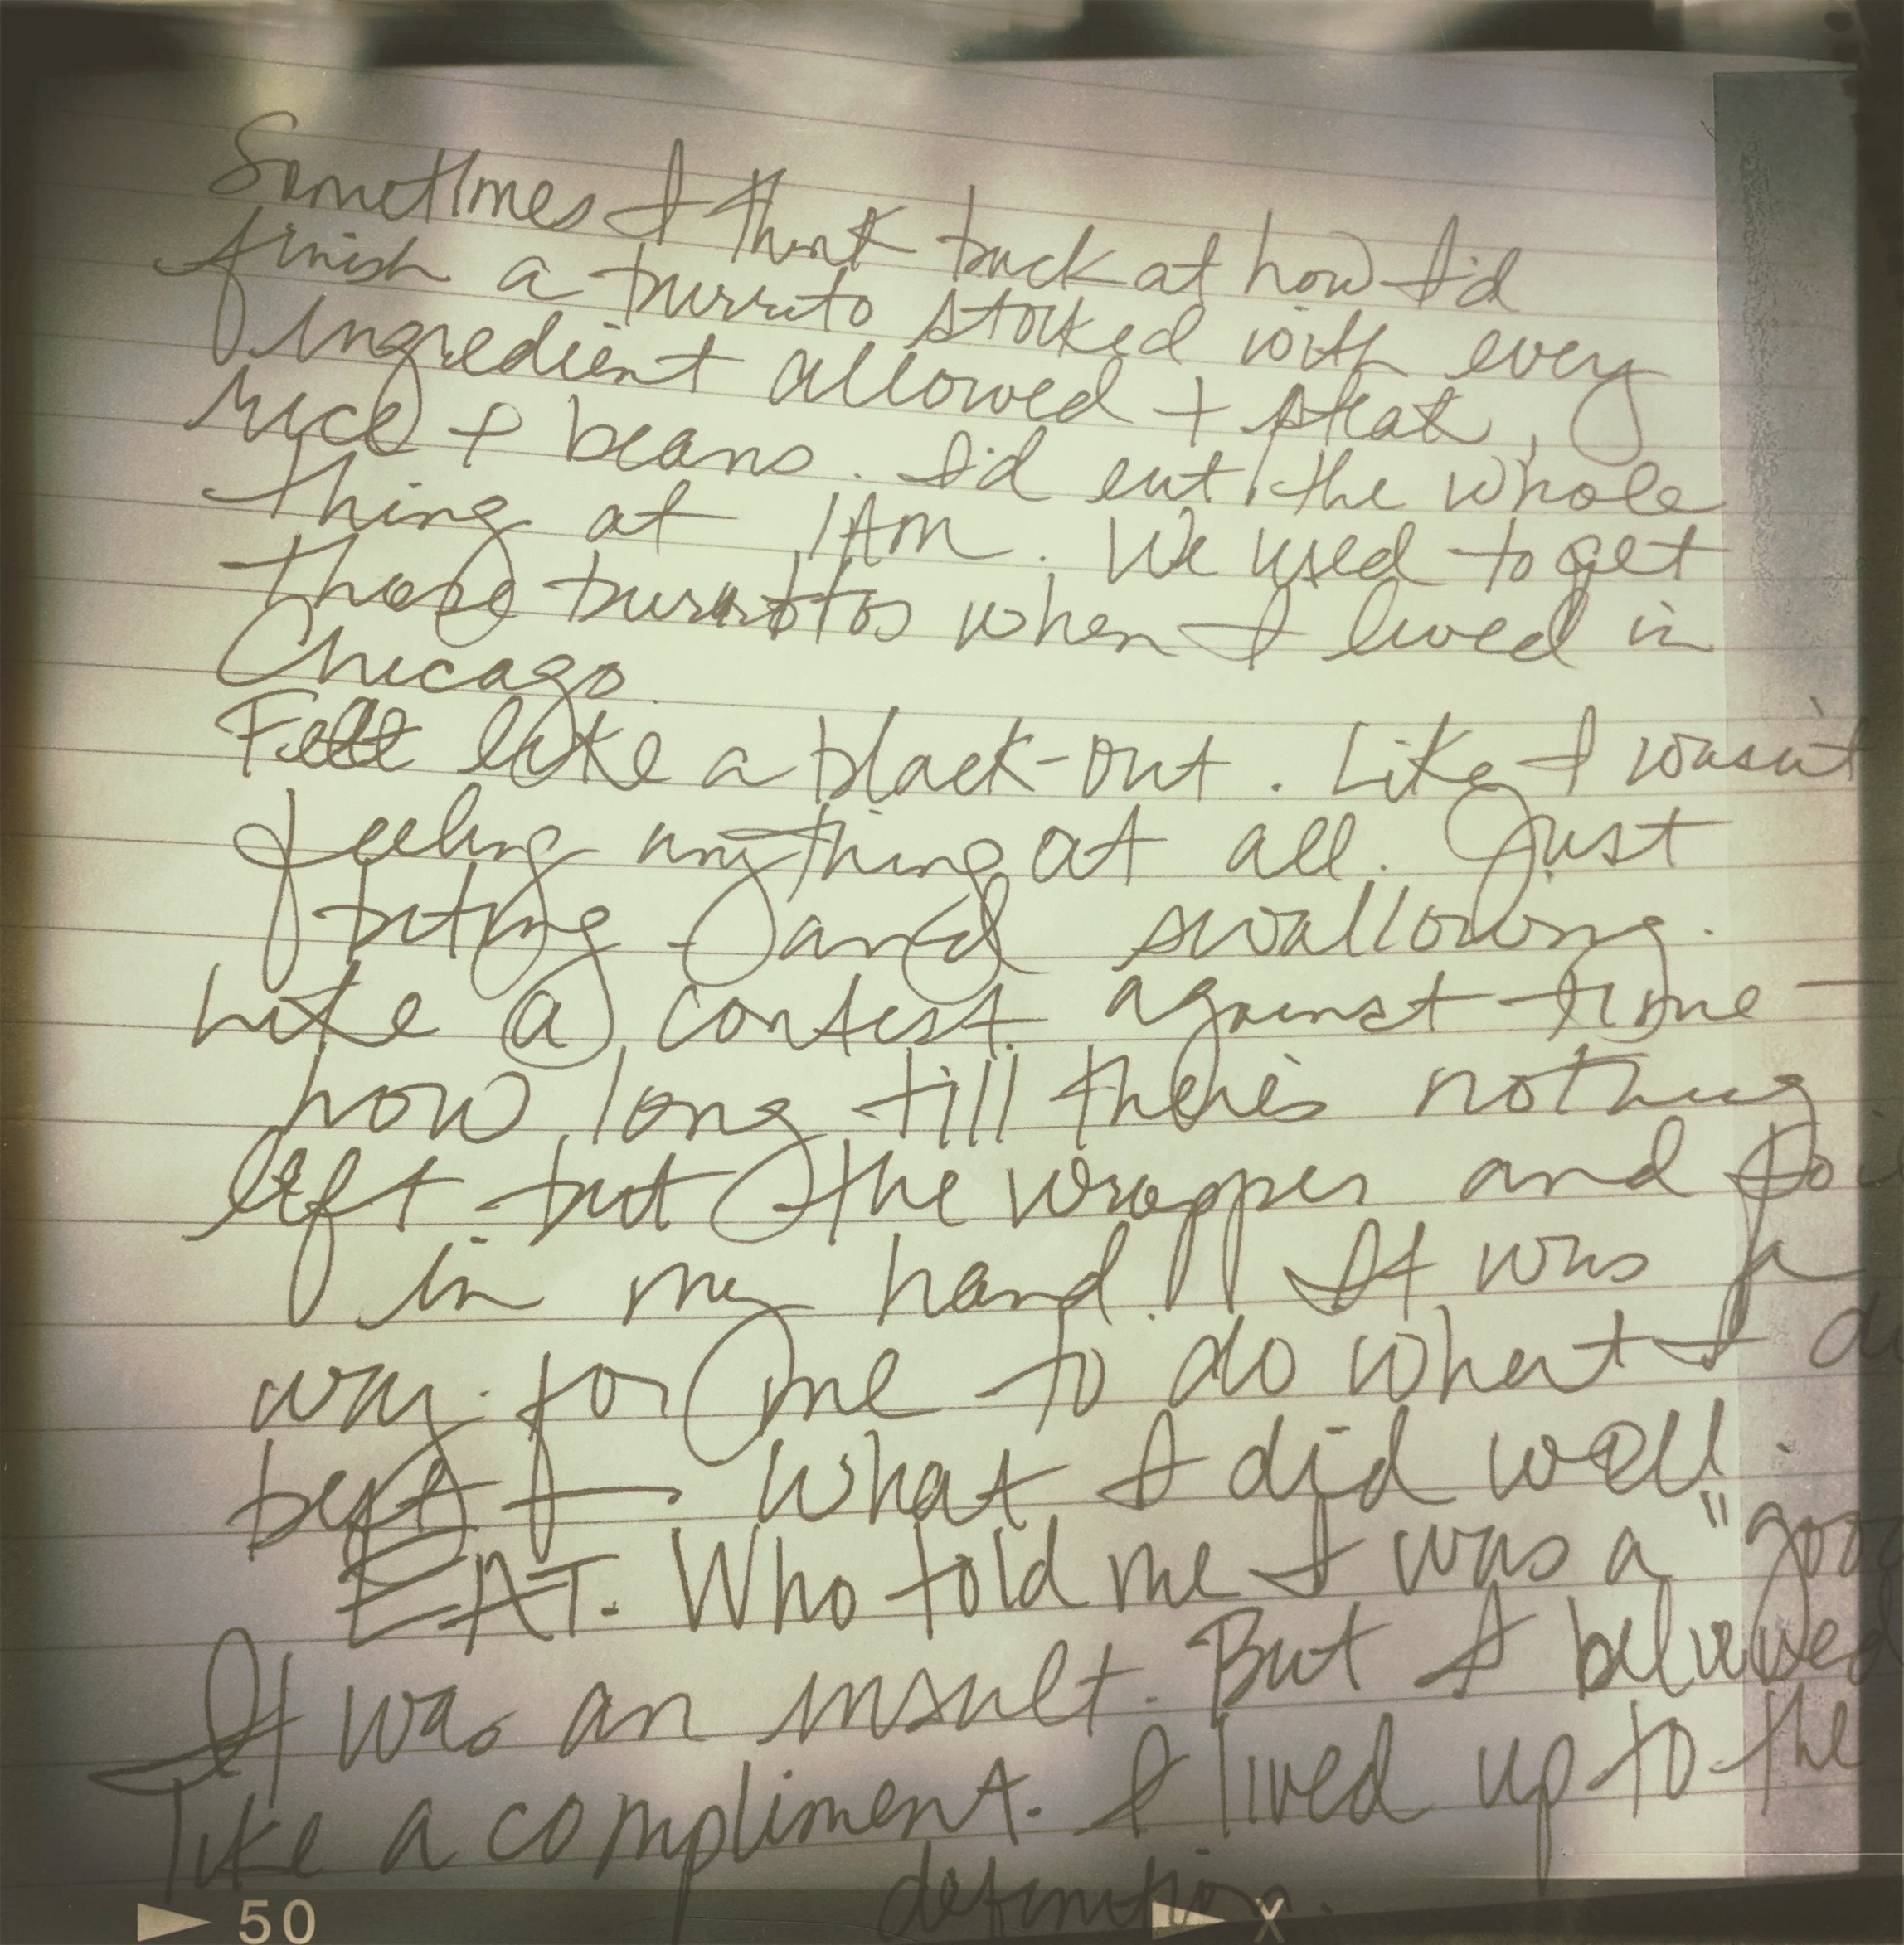 Sometimes I think back at how I'd
finish a burrito stocked with every
ingredient allowed + steak,
rice + beans. I'd eat the whole
thing at 1AM. We used to get
those burritos when I lived in
Chicago.
Felt like a black-out. Like I wasn't
feeling anything at all. Just
biting and swallowing.
Like a contest against time -
how long till there's nothing
left but the wrapper and foi
in my hand. It was a
way for me to do what I di
best — . What I did well.
EAT. Who told me I was a "good
It was an insult. But I believed
like a compliment. I lived up to the
definition.
50
X